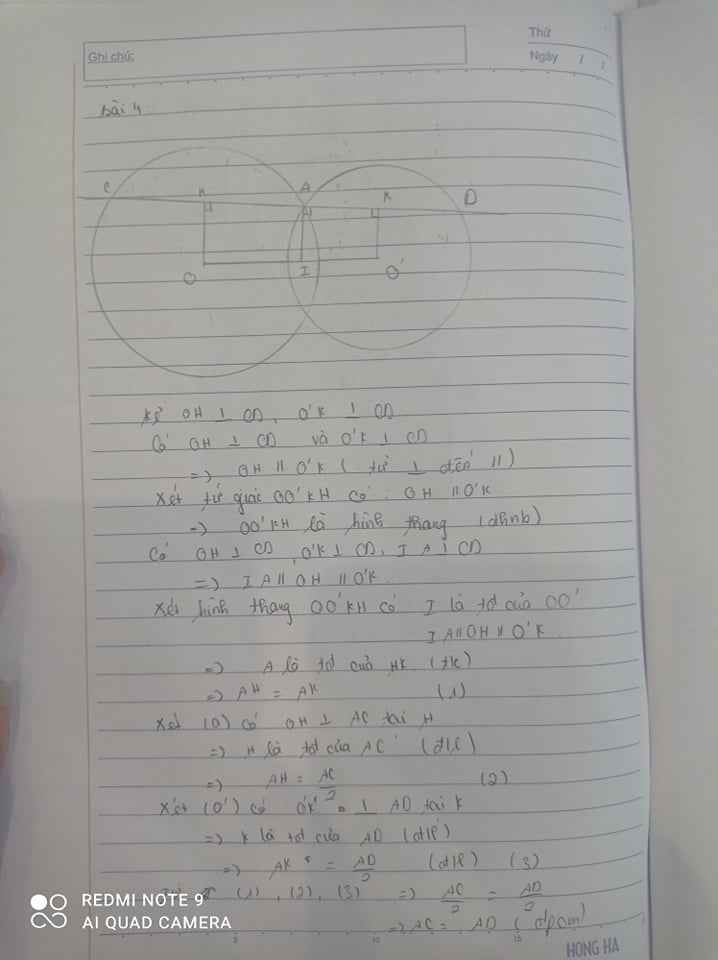 Thứ
Ghi chú:
Ngày / /
Bài 4
C H A K D
O I O'
Kẻ OH ⊥ CD, O'K ⊥ CD
Có OH ⊥ CD và O'K ⊥ CD
=> OH // O'K ( từ ⊥ đến //)
Xét tứ giác OO'KH có : OH // O'K
=> OO'KH là hình thang (dhnb)
Có OH ⊥ CD, O'K ⊥ CD, IA ⊥ CD
=> IA // OH // O'K.
Xét hình thang OO'KH có I là tđ của OO'
IA // OH // O'K.
=> A là tđ của HK (t/c)
=> AH = AK (1)
Xét (O) có OH ⊥ AC tại H
=> H là tđ của AC (đ/l)
=> AH = AC/2 (2)
Xét (O') có O'K ⊥ AD tại K
=> K là tđ của AD (đ/l)
=> AK = AD/2 (đ/l) (3)
(1), (2), (3) => AC/2 = AD/2
=> AC = AD (đpcm)
REDMI NOTE 9
AI QUAD CAMERA
5 10 15
HONG HA